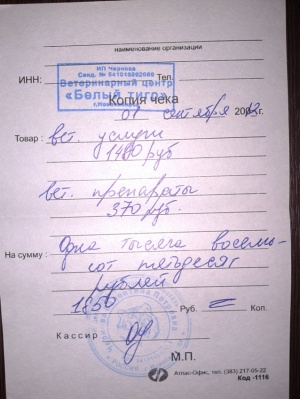 наименование организации
ИНН: Тел.
ИП Чернова
Ветеринарный центр
«Белый тигр»
Копия чека
01 сентября 20
Товар: вет. услуги
1480 руб
вет. препараты
370 руб.
На сумму: Одна тысяча восемь-
сот пятьдесят
рублей
1850 Руб. = Коп.
Кассир
М.П.
Атлас-Офис, тел. (383) 217-05-22
Код -1116